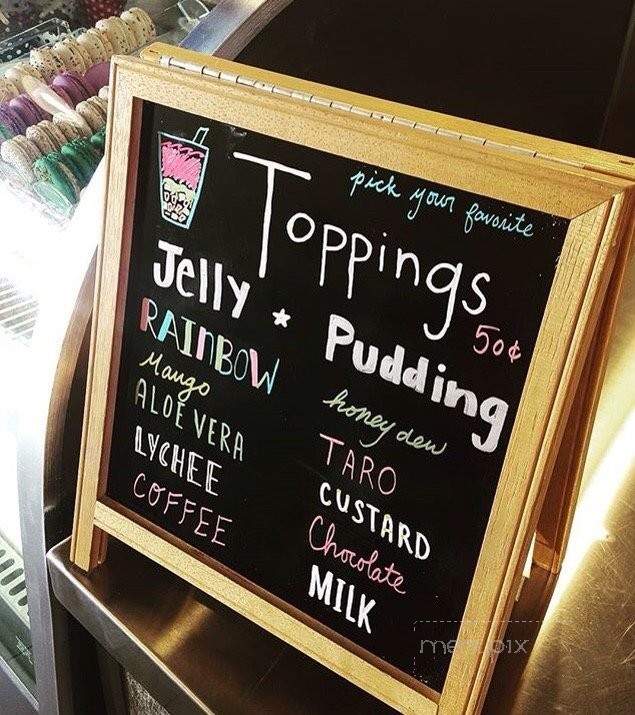 pick your favorite
Toppings
50¢
Jelly * Pudding
RAINBOW
Mango
ALOE VERA
LYCHEE
COFFEE
honey dew
TARO
CUSTARD
Chocolate
MILK
menupix